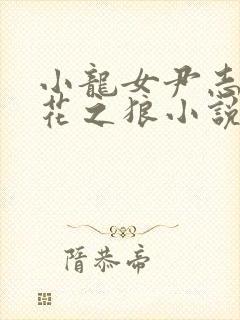 小龍女尹志
花之狼小說
隋恭帝